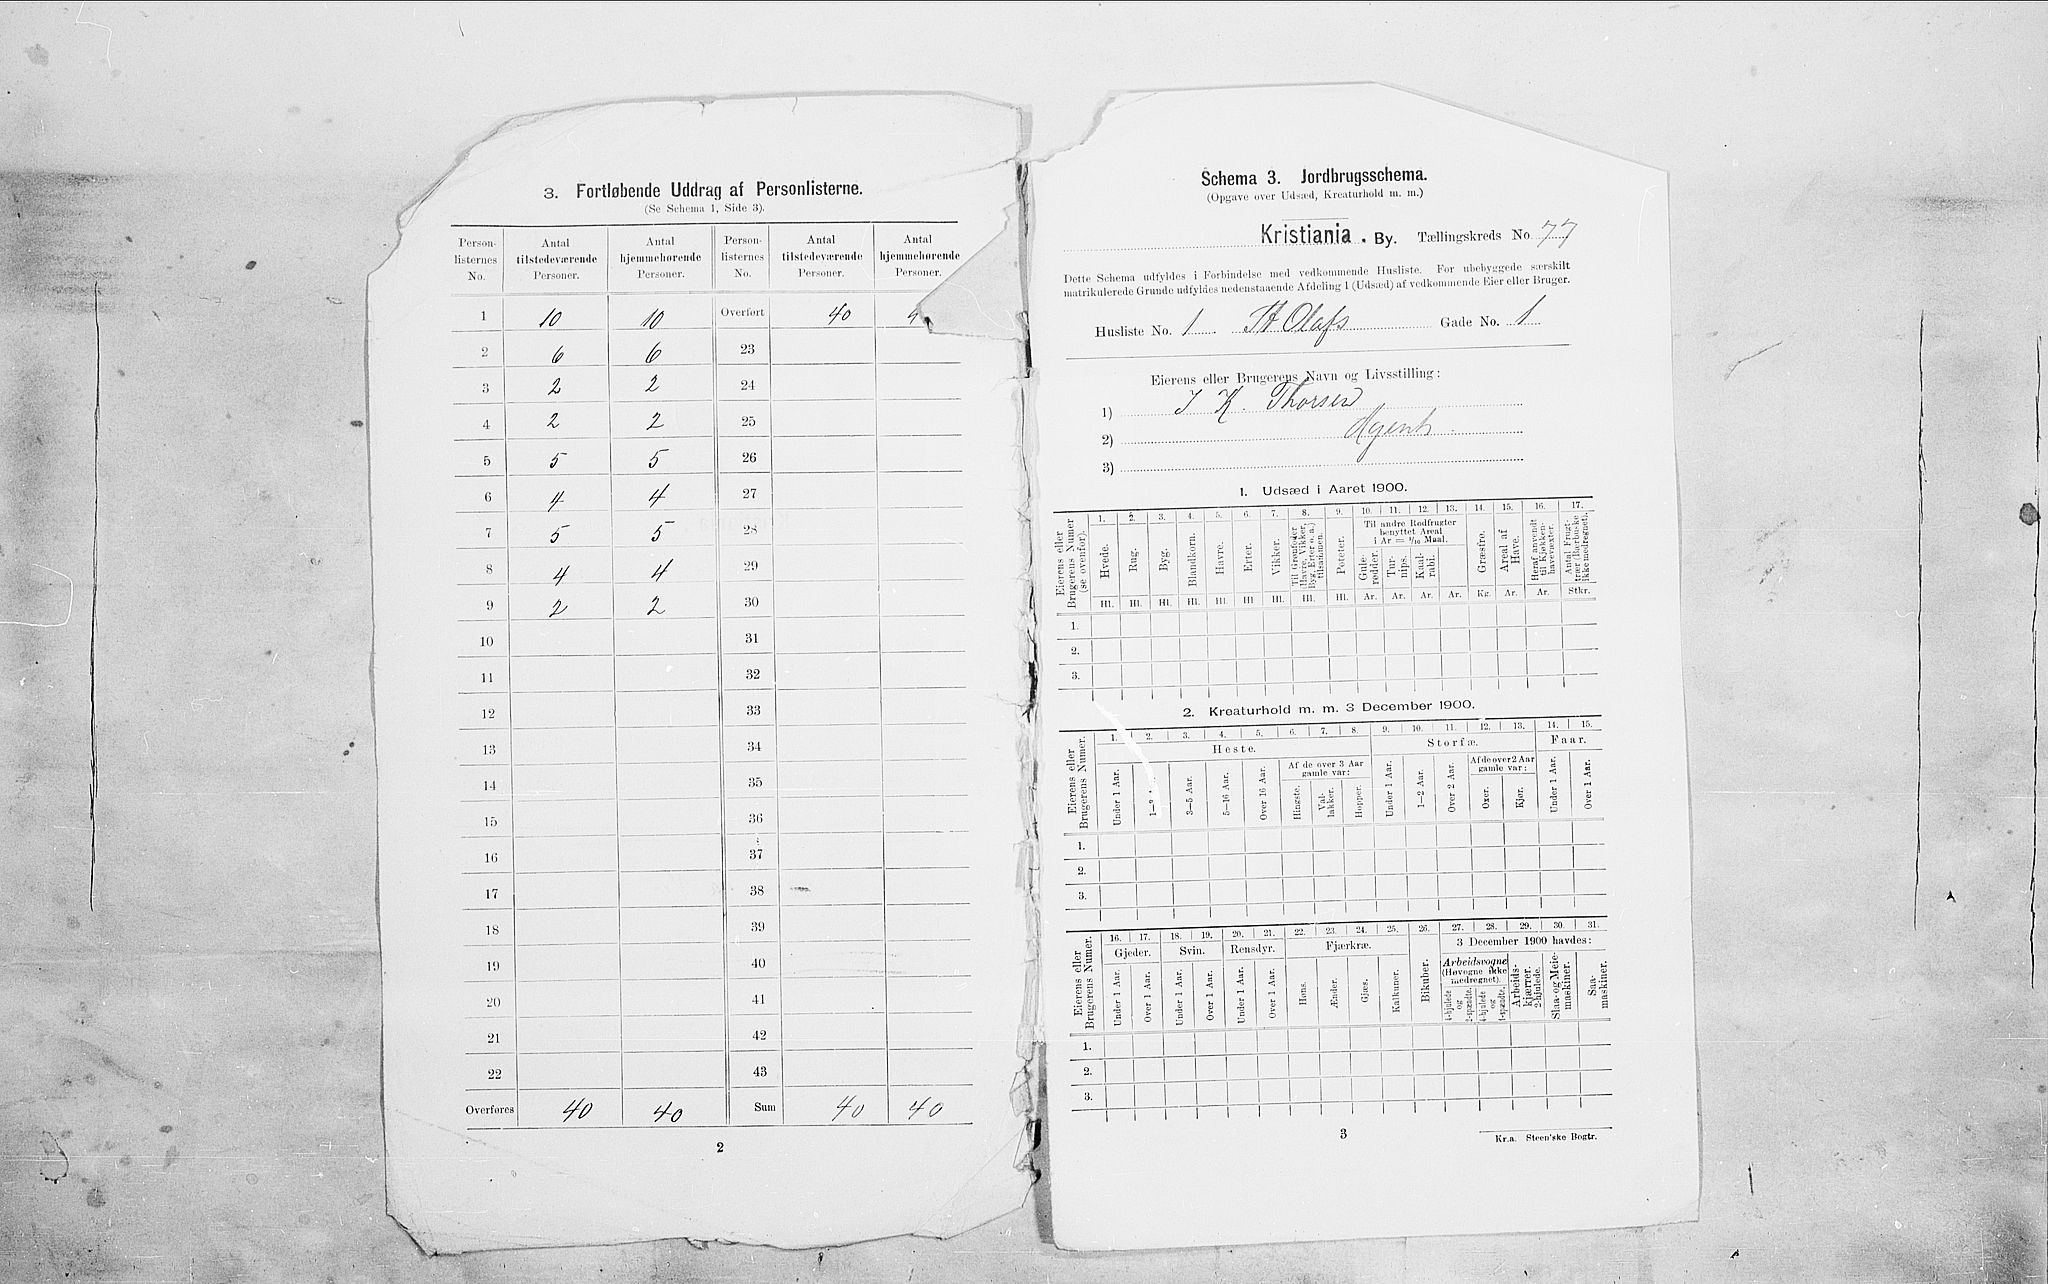 3. Fortløbende Uddrag af Personlisterne.
(Se Schema 1, Side 3).
Person-listernes No. | Antal tilstedeværende Personer. | Antal hjemmehørende Personer. | Person-listernes No. | Antal tilstedeværende Personer. | Antal hjemmehørende Personer.
1 10 10 Overført 40
2 6 6 23
3 2 2 24
4 2 2 25
5 5 5 26
6 4 4 27
7 5 5 28
8 4 4 29
9 2 2 30
10 31
11 32
12 33
13 34
14 35
15 36
16 37
17 38
18 39
19 40
20 41
21 42
22 43
Overføres 40 40 Sum 40 40
2
Schema 3. Jordbrugsschema.
(Opgave over Udsæd, Kreaturhold m. m.)
Kristiania. By. Tællingskreds No. 77
Dette Schema udfyldes i Forbindelse med vedkommende Husliste. For ubebyggede særskilt
matrikulerede Grunde udfyldes nedenstaaende Afdeling 1 (Udsæd) af vedkommende Eier eller Bruger.
Husliste No. 1 St Olafs Gade No. 1
Eierens eller Brugerens Navn og Livsstilling:
1) J K. Thorsen
2) Agent.
3)
1. Udsæd i Aaret 1900.
Eierens eller Brugerens Numer (se ovenfor).
1. 2. 3. 4. 5. 6. 7. 8. 9. 10. 11. 12. 13. 14. 15. 16. 17.
Til andre Rodfrugter benyttet Areal i Ar = 1/10 Maal.
Hvede. Rug. Byg. Blandkorn. Havre. Erter. Vikker. Til Grønfoder Havre, Vikker, Byg, Erter o. a.) tilsaaman. Poteter. Gule-rødder. Tur-nips. Kaal-rabi. Græsfrø. Areal af Have. Heraf anvendt til Kjøkken-havevæxter. Antal Frugt-trær (Bærbuske ikke medregnet).
Hl. Hl. Hl. Hl. Hl. Hl. Hl. Hl. Hl. Ar. Ar. Ar. Ar. Kg. Ar. Ar. Stkr.
1.
2.
3.
2. Kreaturhold m. m. 3 December 1900.
Eierens eller Brugerens Numer.
1. 2. 3. 4. 5. 6. 7. 8. 9. 10. 11. 12. 13. 14. 15.
Heste. Storfæ. Faar.
Af de over 3 Aar gamle var: Af de over 2 Aar gamle var:
Under 1 Aar. 3—5 Aar. 5—16 Aar. Over 16 Aar. Hingste. Val-lakker. Hopper. Under 1 Aar. 1—2 Aar. Over 2 Aar. Oxer. Kjør. Under 1 Aar. Over 1 Aar.
1.
2.
3.
Eierens eller Brugerens Numer.
16. 17. 18. 19. 20. 21. 22. 23. 24. 25. 26. 27. 28. 29. 30. 31.
Gjeder. Svin. Rensdyr. Fjærkræ. Bikuber. 3 December 1900 havdes:
Arbeidsvogne (Høvogne ikke medregnet).
Under 1 Aar. Over 1 Aar. Under 1 Aar. Over 1 Aar. Under 1 Aar. Over 1 Aar. Høns. Ænder. Gjæs. Kalkuner. 4-hjulede og 2-spændte. 4-hjulede og 1-spændte. Arbeids-kjærrer. 2-hjulede. Slaa- og Meie-maskiner. Saa-maskiner.
1.
2.
3.
3
Kr.a. Steen'ske Bogtr.